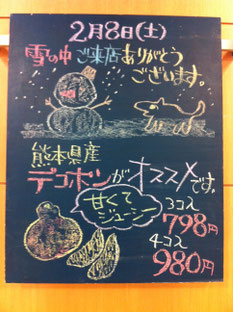 2月8日(土)
雪の中ご来店ありがとう
ございます。
熊本県産
デコポンがオススメです。
甘くて
ジューシー
3コ入
798円
4コ入
980円